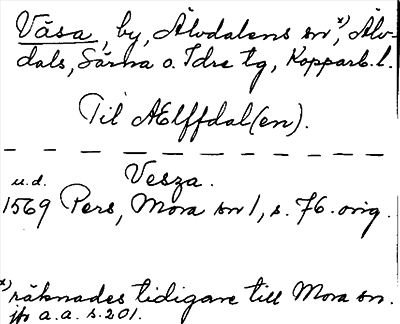 Våsa, by, Älvdalens sn x), Älv-
dals, Särna o. Idre tg, Kopparb. l.
Til AElffdal(en).
Vesza.
u.d.
1569 Pers, Mora sn 1, s. 76. orig.
x) räknades tidigare till Mora sn.
jfr a.a. s. 201.